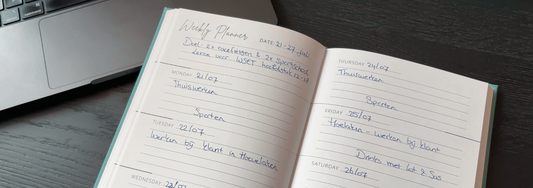 Weekly Planner
DATE: 21-27 Juli
Doel: 2x racefietsen & 2x sportschool
Leren voor WSET hoofdstuk
MONDAY 21/07
Thuiswerken
Sporten
TUESDAY 22/07
Werken bij klant in Hoevelaken
WEDNESDAY 23/07
THURSDAY 24/07
Thuiswerken
Sporten
FRIDAY 25/07
Hoevelaken - werken bij klant
Drinks met Lot & Sas
SATURDAY 26/07